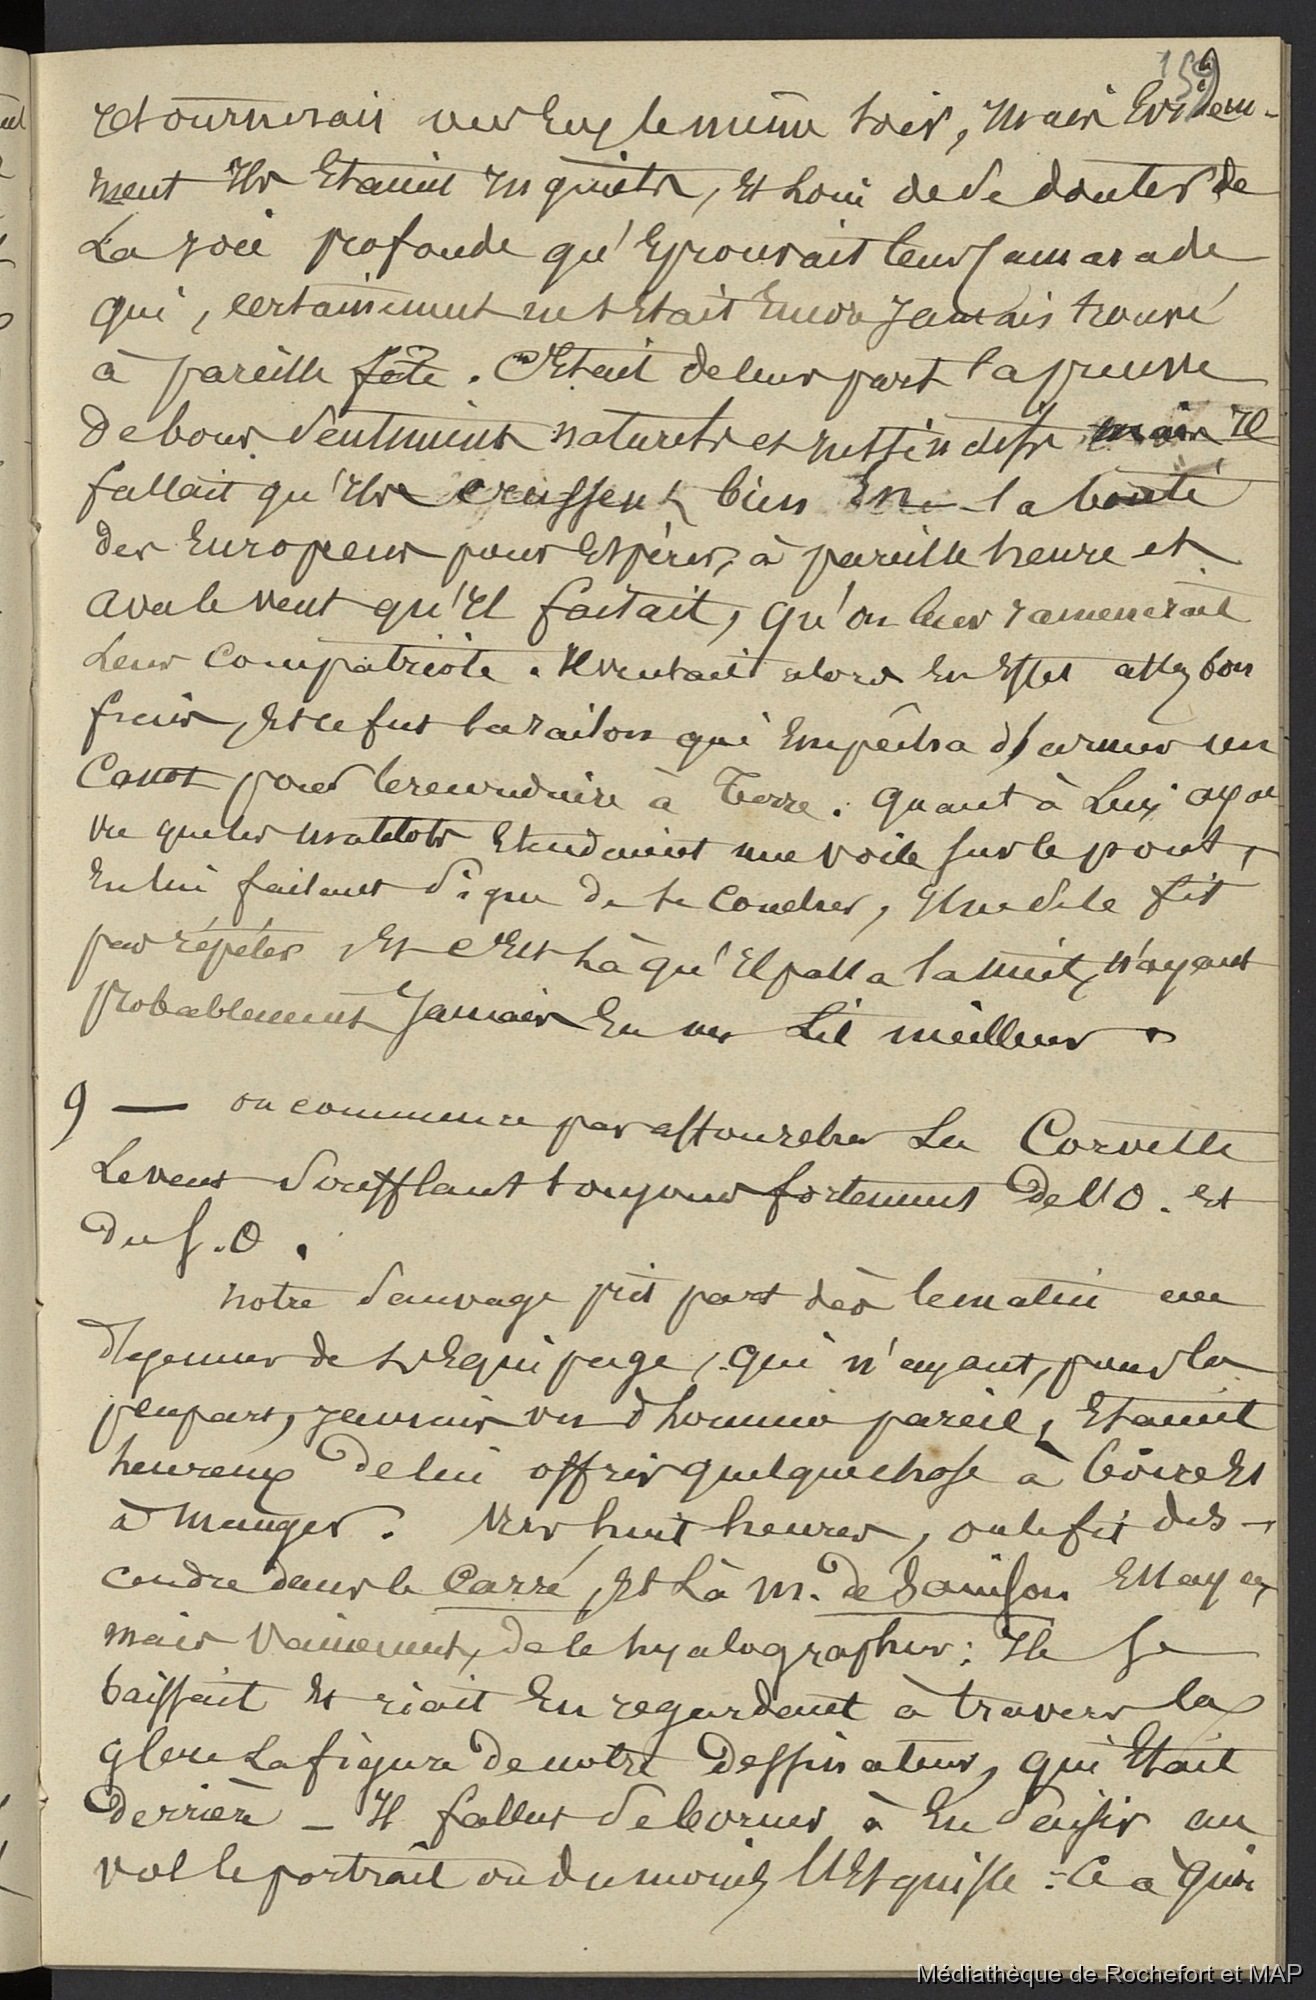 159
retournerait vers Eux le même soir, mais Evidem-
ment Ils Etaient Inquiets, Et Loin de se douter de
La Joie profonde qu'Eprouvait leur Camarade
qui, certainement ne s'Etait Encore Jamais trouvé
à pareille fête. C'Etait de leur part la preuve
de bons sentiments naturels et instinctifs mais Il
fallait qu'Ils crussent bien En la bonté
des Européens pour Espérer, à pareille heure et
avec le vent qu'Il faisait, qu'on leur ramenerait
Leur Compatriote. Il ventait alors En Effet assez bon
frais, Et ce fut la raison qui Empêcha d'armer un
Canot pour le reconduire à Terre. Quant à Lui, ayant
vu que les matelots Etendaient une voile sur le pont,
En lui faisant Signe de se Coucher, Il ne se le fit
pas répéter, Et c'Est Là qu'Il passa la nuit, n'ayant
probablement Jamais Eu un Lit meilleur.
9 — on commence par affourcher La Corvette
Le vent Soufflant toujours fortement De l'O. et
du S.O.
notre Sauvage prit part dès le matin au
déjeuner de l'Equipage, qui n'ayant, pour la
plupart, jamais vu d'homme pareil, Etaient
heureux De lui offrir quelque chose à boire Et
à manger. Vers huit heures, on le fit des-
cendre dans le Carré, Et Là M. de Sainson Essaya,
mais Vainement, de le hyalographier: Il Se
baissait Et riait En regardant à travers la
glace La figure De notre Dessinateur, qui Etait
Derrière — Il fallut Se borner à En Saisir au
vol le portrait ou du moins l'Esquisse : Ce à quoi
Médiathèque de Rochefort et MAP